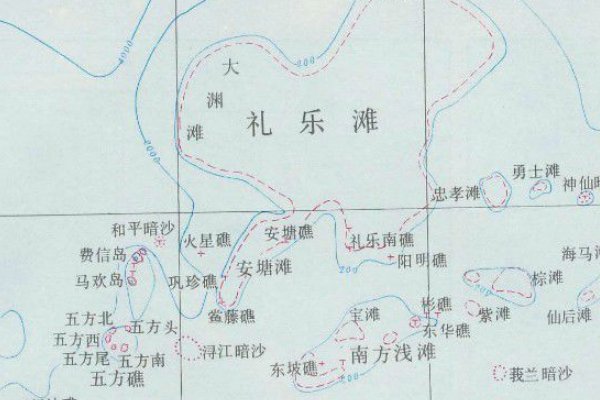 4000
200
大
渊
滩
礼乐滩
2000
勇士滩
神仙暗
忠孝滩
和平暗沙
火星礁
安塘礁
礼乐南礁
费信岛
海马滩
马欢岛
巩珍礁
安塘滩
200
阳明礁
棕滩
鲎藤礁
宝滩
彬礁
紫滩
仙后滩
五方北
五方头
东华礁
五方西
浔江暗沙
南方浅滩
五方尾
五方南
东坡礁
五方礁
200
莪兰暗沙